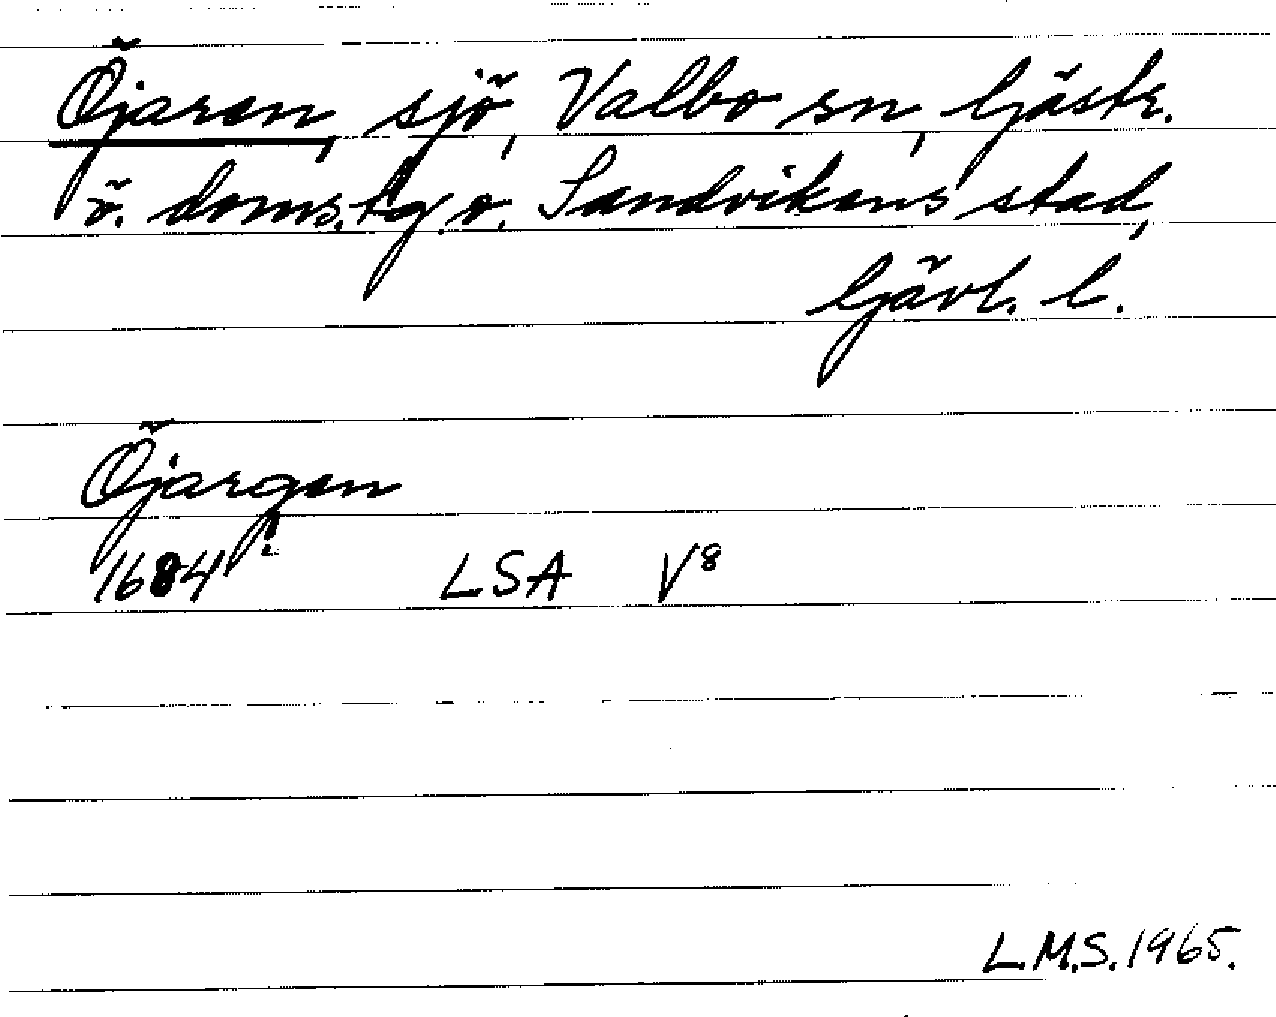 Öjaren, sjö, Valbo sn, Gästr.
ö. doms.tg o. Sandvikens stad,
Gävl. l.
Öjargen
1684 LSA V8
L.M.S. 1965.